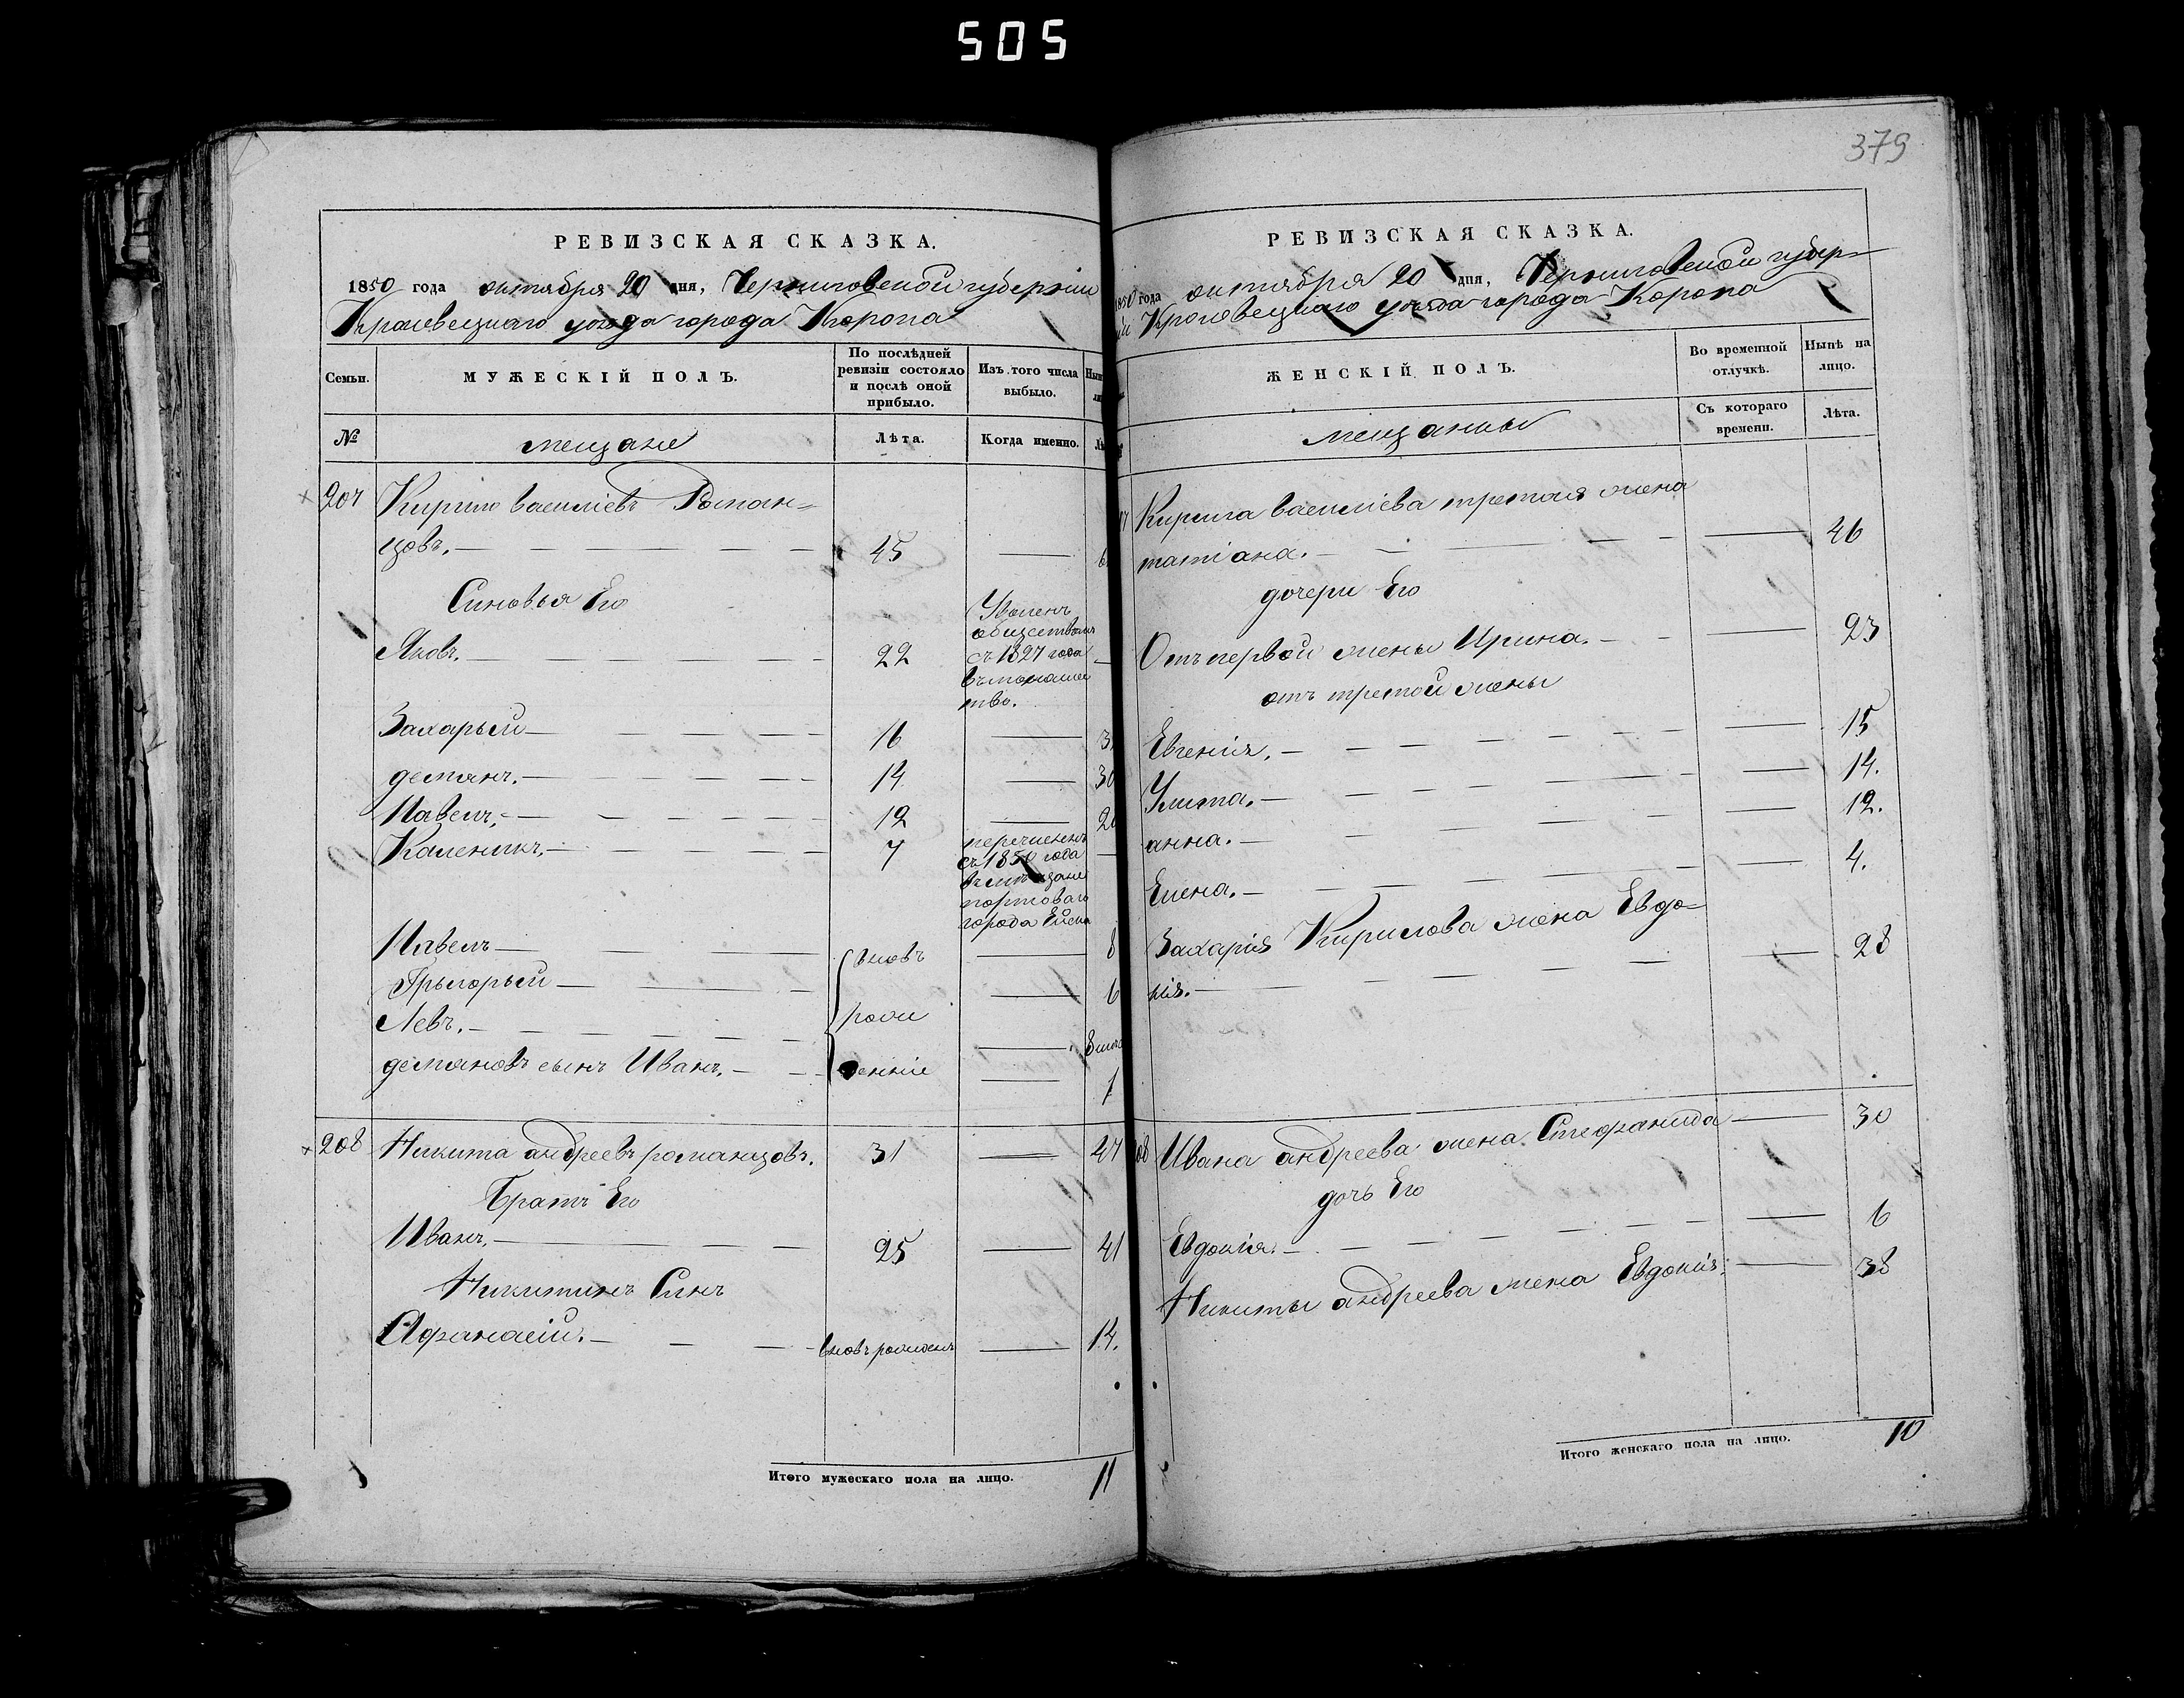 505
РЕВИЗСКАЯ СКАЗКА.
1850 года октября 20 дня, Черниговской губернии
Кролевецкаго уезда города Коропа
Семьи.
МУЖЕСКІЙ ПОЛЪ.
По послѣдней
ревизіи состояло
и послѣ оной
прибыло.
Изъ того числа
выбыло.
№
мещане
Лѣта.
Когда именно.
207
Кирило Василіевъ Роман=
цовъ.
45
Синовья Его
Яковъ.
22
Уволенъ
обществомъ
съ 1827 года
въ монашес
тво.
Захарьи
16
демянъ.
14
30
Павелъ.
12
Каленикъ.
7
перечисленъ
съ 1850 года
въ мещане
портоваго
города Ейска
Павелъ
вновь
8
Грыгорьи
6
Левъ.
рож
демяновъ сынъ Иванъ.
денніе
1
208
Никита андреевъ романцовъ.
31
47
Братъ Его
Иванъ.
25
41
Никитинъ Синъ
Афанасіи.
вновь рожденъ
14.
Итого мужескаго пола на лицо.
11
379
РЕВИЗСКАЯ СКАЗКА.
1850 года октября 20 дня, Черниговской губер
ніи Кролевецкаго уезда города Коропа
ЖЕНСКІЙ ПОЛЪ.
Во временной
отлучкѣ.
Нынѣ на
лицо.
мещанки
Съ котораго
времени.
Лѣта.
Кирила Василіева третая жена
татіана.
46
дочери Его
Отъ первой жены Ирина.
23
отъ третой жены
Евгенія.
15
Улита.
14.
анна.
12.
Елена.
4.
Захарія Кирилова жена Евдо=
кія.
28
Ивана андреева жена Стефанида
30
дочь Его
Евдокія.
6
Никиты андреева жена Евдокія.
38
Итого женскаго пола на лицо.
10